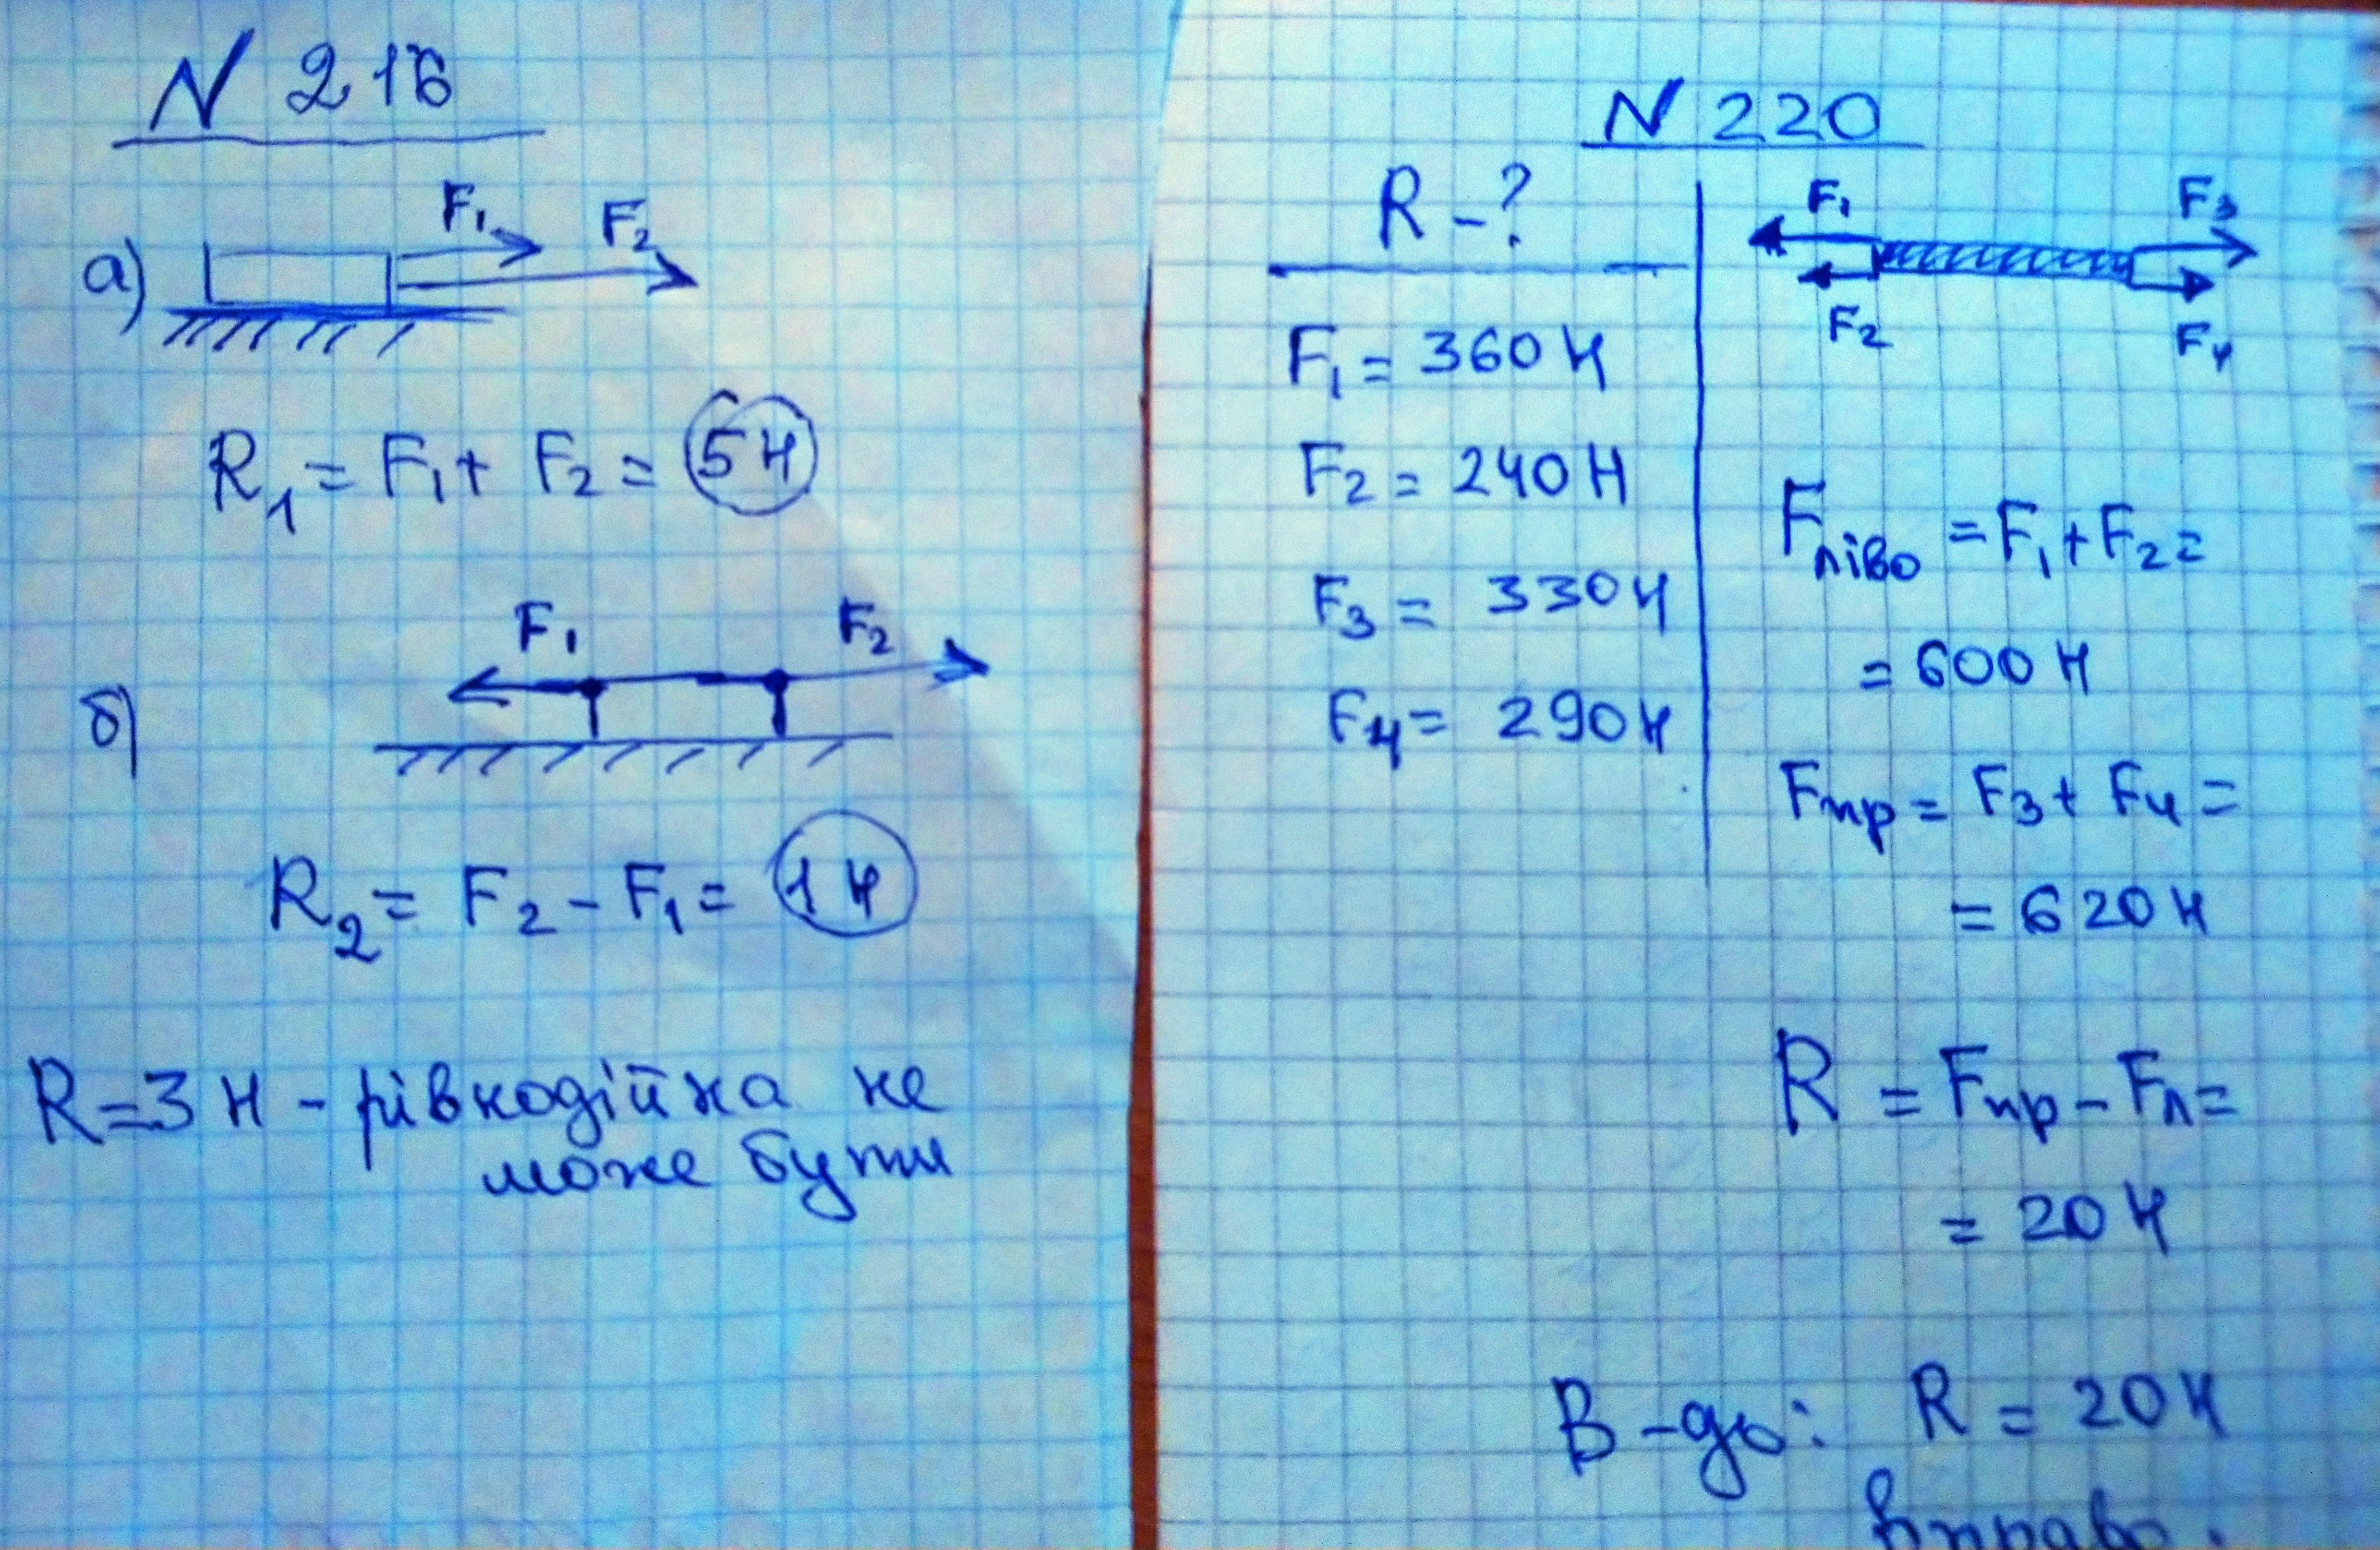 N 216
F₁
F₂
а)
R₁ = F₁ + F₂ = 5 Н
F₁
F₂
б)
R₂ = F₂ - F₁ = 1 Н
R = 3 Н - рівнодійна не
може бути
N 220
R - ?
F₁ = 360 Н
F₂ = 240 Н
F₃ = 330 Н
F₄ = 290 Н
F₁
F₃
F₂
F₄
Fліво = F₁ + F₂ =
= 600 Н
Fпр = F₃ + F₄ =
= 620 Н
R = Fпр - Fл =
= 20 Н
В-дь: R = 20 Н
вправо.